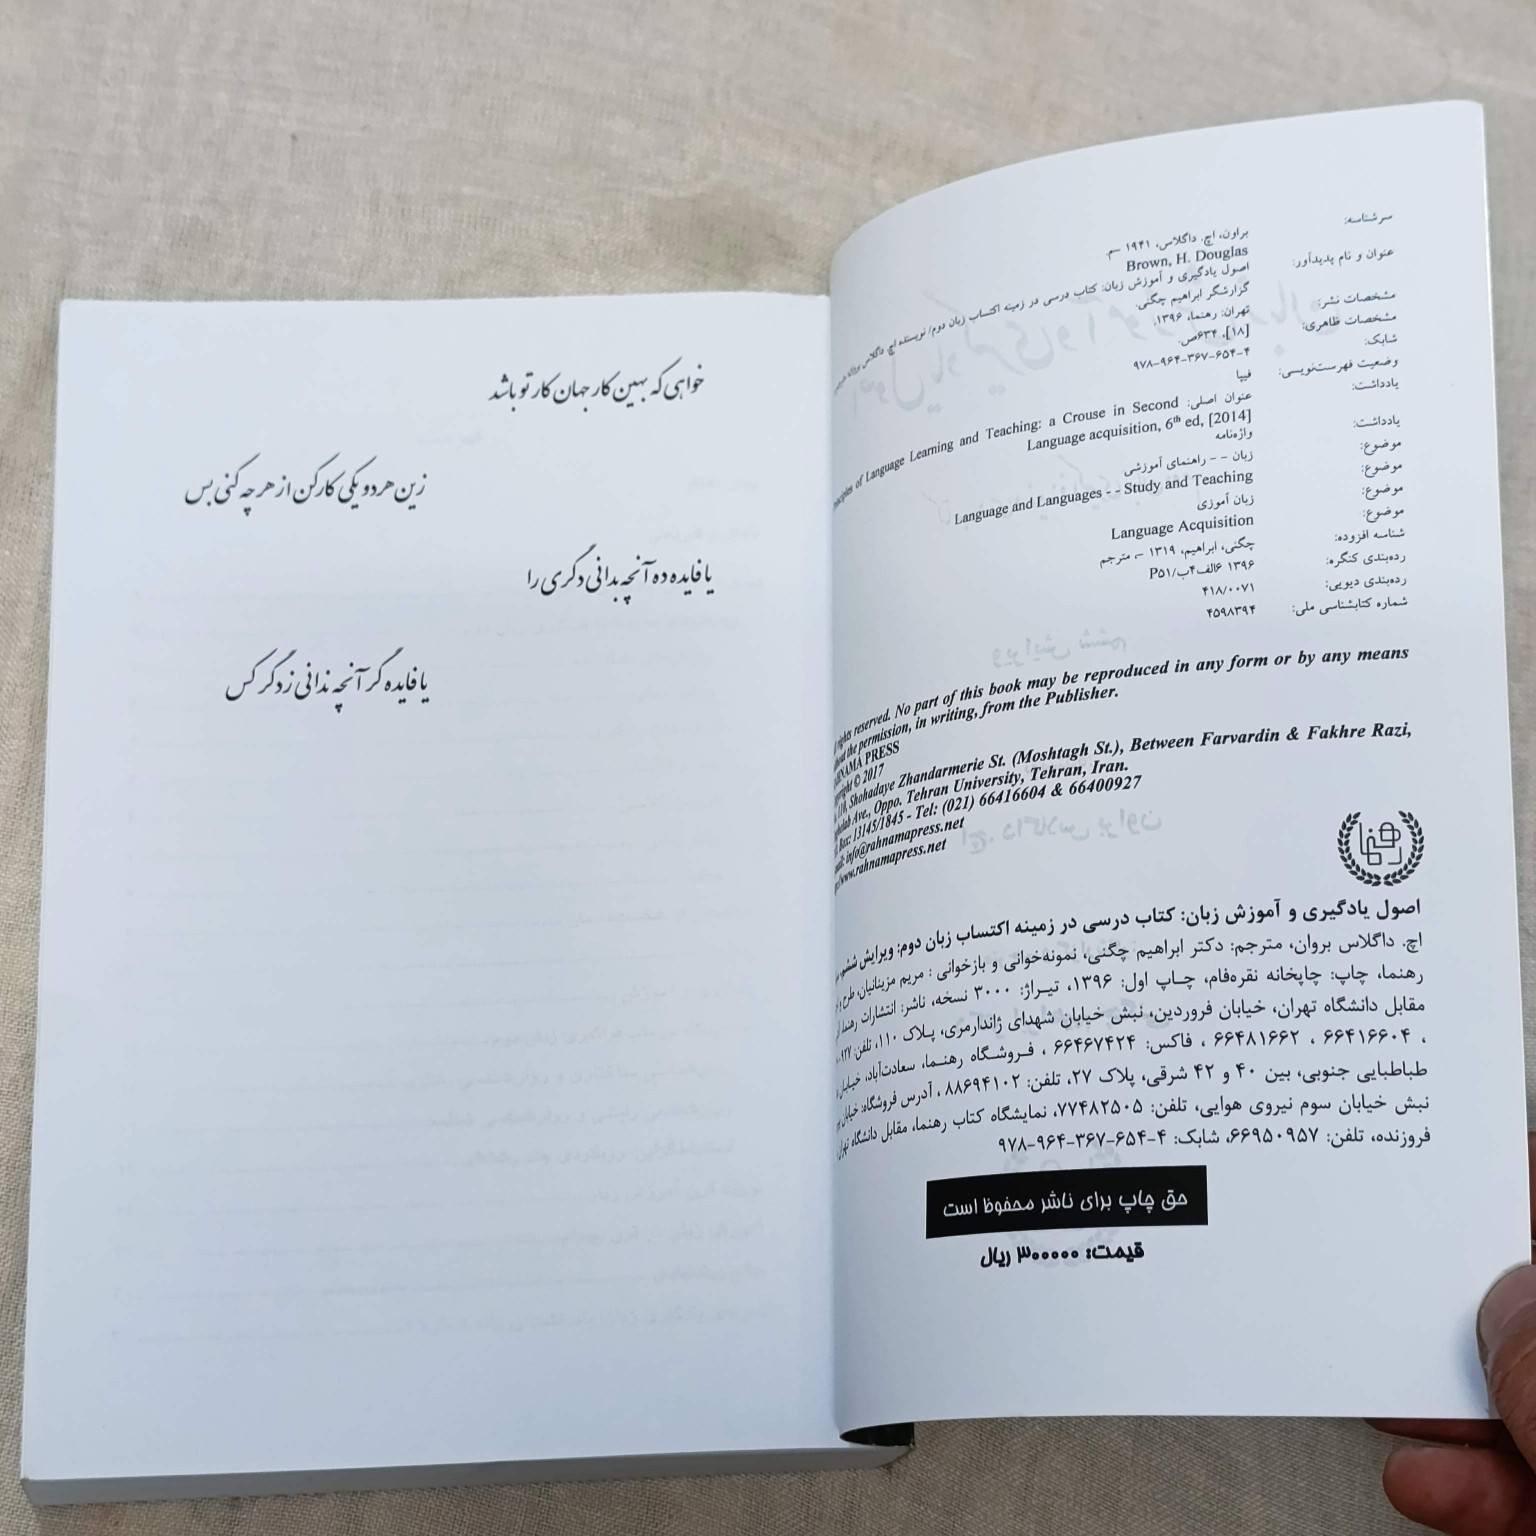 سرشناسه: براون، اچ. داگلاس، ۱۹۴۱ -م.
Brown, H. Douglas
عنوان و نام پدیدآور: اصول یادگیری و آموزش زبان: کتاب درسی در زمینه اکتساب زبان دوم/ نویسنده اچ. داگلاس
گزارشگر ابراهیم چگنی.
مشخصات نشر: تهران: رهنما، ۱۳۹۶.
مشخصات ظاهری: [۱۸]، ۶۳۴ص.
شابک: ۹۷۸-۹۶۴-۳۶۷-۶۵۴-۴
وضعیت فهرست‌نویسی: فیپا
یادداشت: عنوان اصلی: of Language Learning and Teaching: a Crouse in Second
Language acquisition, 6th ed, [2014]
یادداشت: واژه‌نامه
موضوع: زبان - - راهنمای آموزشی
موضوع: Language and Languages - - Study and Teaching
موضوع: زبان آموزی
موضوع: Language Acquisition
شناسه افزوده: چگنی، ابراهیم، ۱۳۱۹ -، مترجم
رده‌بندی کنگره: ۱۳۹۶ ۶الف۴ب/P۵۱
رده‌بندی دیویی: ۴۱۸/۰۰۷۱
شماره کتابشناسی ملی: ۴۵۹۸۳۹۴
rights reserved. No part of this book may be reproduced in any form or by any means
the permission, in writing, from the Publisher.
PRESS
© 2017
Shohadaye Zhandarmerie St. (Moshtagh St.), Between Farvardin & Fakhre Razi,
Ave., Oppo. Tehran University, Tehran, Iran.
Box: 13145/1845 - Tel: (021) 66416604 & 66400927
info@rahnamapress.net
www.rahnamapress.net
رهنما
اصول یادگیری و آموزش زبان: کتاب درسی در زمینه اکتساب زبان دوم: ویرایش ششم،
اچ. داگلاس بروان، مترجم: دکتر ابراهیم چگنی، نمونه‌خوانی و بازخوانی : مریم مزینانیان، طرح و
رهنما، چاپ: چاپخانه نقره‌فام، چـاپ اول: ۱۳۹۶، تیـراژ: ۳۰۰۰ نسخه، ناشر: انتشارات رهنما،
مقابل دانشگاه تهران، خیابان فروردین، نبش خیابان شهدای ژاندارمری، پـلاک ۱۱۰، تلفن:
، ۶۶۴۱۶۶۰۴ ، ۶۶۴۸۱۶۶۲ ، فاکس: ۶۶۴۶۷۴۲۴ ، فـروشگـاه رهنـما، سعادت‌آباد، خیـابـان
طباطبایی جنوبی، بین ۴۰ و ۴۲ شرقی، پلاک ۲۷، تلفن: ۸۸۶۹۴۱۰۲ ، آدرس فروشگاه: خیابان
نبش خیابان سوم نیروی هوایی، تلفن: ۷۷۴۸۲۵۰۵، نمایشگاه کتاب رهنما، مقابل دانشگاه تهران،
فروزنده، تلفن: ۶۶۹۵۰۹۵۷، شابک: ۴-۶۵۴-۳۶۷-۹۶۴-۹۷۸
حق چاپ برای ناشر محفوظ است
قیمت: ۳۰۰۰۰۰ ریال
خواهی که بهین کار جهان کار تو باشد
زین هر دو یکی کار کن از هر چه کنی بس
یا فایده ده آنچه بدانی دگری را
یا فایده گر آنچه ندانی ز دگر کس